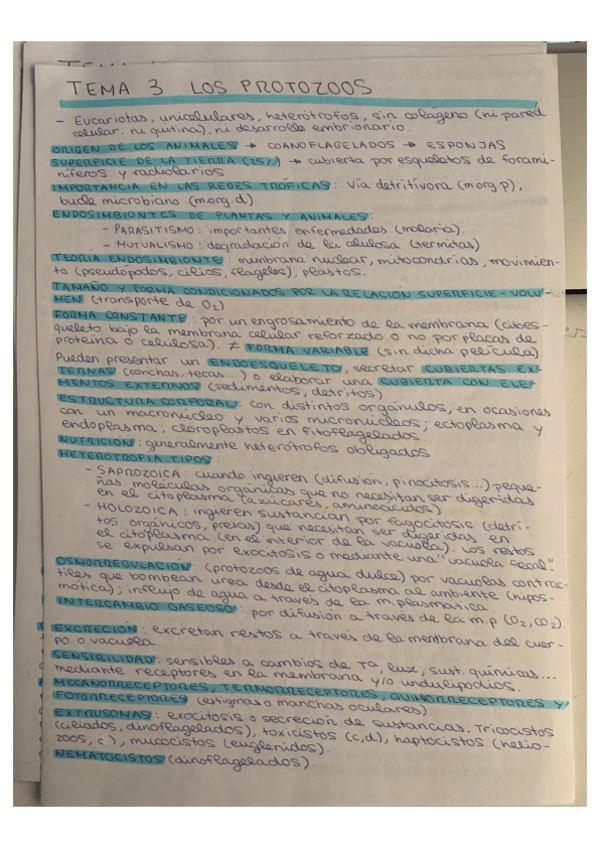 TEMA 3 LOS PROTOZOOS
- Eucariotas, unicelulares, heterótrofos, sin colágeno (ni pared
celular, ni quitina), ni desarrollo embrionario.
ORIGEN DE LOS ANIMALES → COANOFLAGELADOS → ESPONJAS
SUPERFICIE DE LA TIERRA (25%) → cubierta por esqueletos de forami-
níferos y radiolarios.
IMPORTANCIA EN LAS REDES TRÓFICAS: vía detritívora (m org.p),
bucle microbiano (m org.d)
ENDOSIMBIONTES DE PLANTAS Y ANIMALES:
- PARASITISMO: importantes enfermedades (malaria).
- MUTUALISMO: degradación de la celulosa (termitas)
TEORÍA ENDOSIMBIONTE: membrana nuclear, mitocondrias, movimien-
to (pseudópodos, cilios, flagelos), plastos.
TAMAÑO Y FORMA CONDICIONADOS POR LA RELACIÓN SUPERFICIE-VOLU-
MEN (transporte de O2)
FORMA CONSTANTE: por un engrosamiento de la membrana (citoes-
queleto bajo la membrana celular reforzado o no por placas de
proteína o celulosa). ≠ FORMA VARIABLE (sin dicha película)
Pueden presentar un ENDOESQUELETO, secretar CUBIERTAS EX-
TERNAS (conchas, tecas...) o elaborar una CUBIERTA CON ELE-
MENTOS EXTERNOS (sedimentos, detritos).
ESTRUCTURA CORPORAL: con distintos orgánulos; en ocasiones
con un macronúcleo y varios micronúcleos; ectoplasma y
endoplasma; cloroplastos en fitoflagelados.
NUTRICIÓN: generalmente heterótrofos obligados
HETEROTROFIA TIPOS:
- SAPROZOICA: cuando ingieren (difusión, pinocitosis...) peque-
ñas moléculas orgánicas que no necesitan ser digeridas
en el citoplasma (azúcares, aminoácidos).
- HOLOZOICA: ingieren sustancian por fagocitosis (detri-
tos orgánicos, presas) que necesitan ser digeridas en
el citoplasma (en el interior de la vacuola). Los restos
se expulsan por exocitosis o mediante una "vacuola fecal".
OSMORREGULACIÓN: (protozoos de agua dulce) por vacuolas contrác-
tiles que bombean urea desde el citoplasma al ambiente (hipos-
mótica); influjo de agua a través de la m.plasmática.
INTERCAMBIO GASEOSO: por difusión a través de la m.p (O2, CO2)
EXCRECIÓN: excretan restos a través de la membrana del cuer-
po o vacuola.
SENSIBILIDAD: sensibles a cambios de Ta, luz, sust. químicas...
mediante receptores en la membrana y/o undulipodios.
MECANORRECEPTORES, TERMORRECEPTORES, QUIMIORRECEPTORES Y
FOTORRECEPTORES (estigmas o manchas oculares)
EXTRUSONAS: exocitosis o secreción de sustancias. Tricocistos
(ciliados, dinoflagelados), toxicistos (c,d), haptocistos (helio-
zoos, c), mucocistos (euglénidos).
NEMATOCISTOS (dinoflagelados).